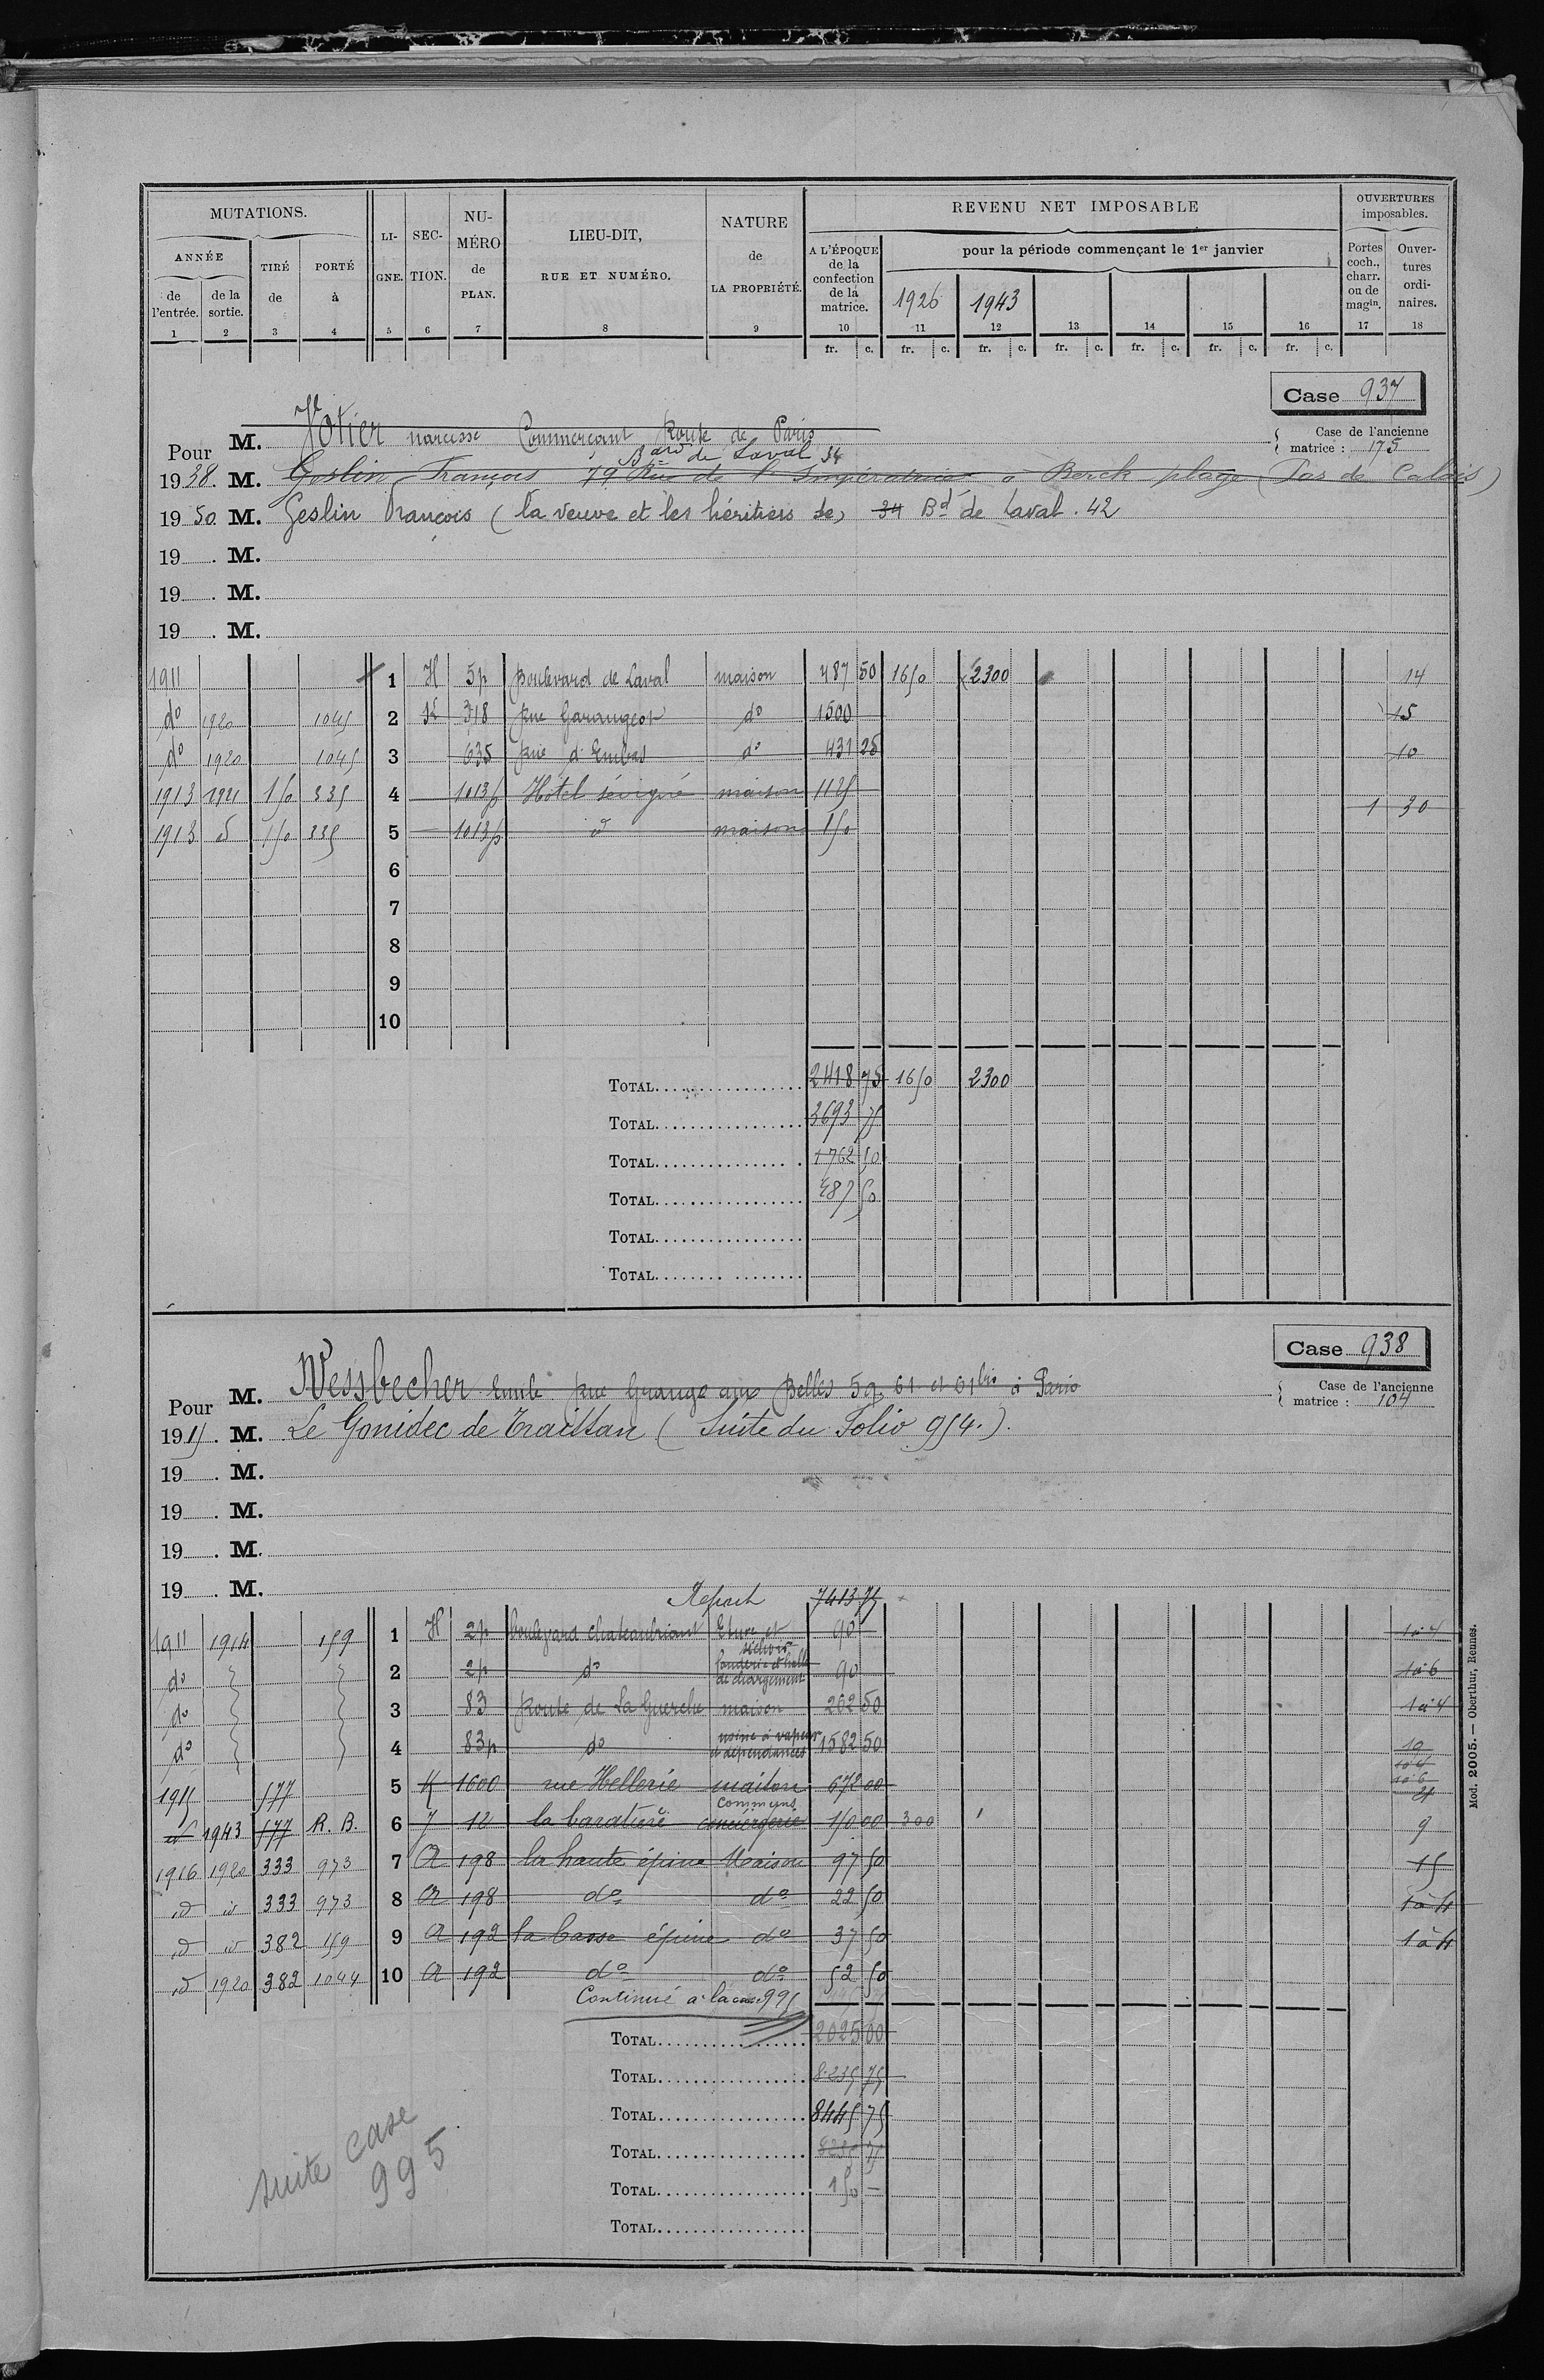 MUTATIONS. LI- SEC- NU- LIEU-DIT, NATURE REVENU NET IMPOSABLE OUVERTURES imposables.
ANNÉE TIRÉ PORTÉ GNE. TION. MÉRO RUE ET NUMÉRO. de A L'ÉPOQUE pour la période commençant le 1er janvier Portes Ouver-
de de la de à de LA PROPRIÉTÉ. de la coch., tures
l'entrée. sortie. PLAN. confection charr. ordi-
de la ou de naires.
matrice. 1926 1943 magin.
1 2 3 4 5 6 7 8 9 10 11 12 13 14 15 16 17 18
fr. c. fr. c. fr. c. fr. c. fr. c. fr. c. fr. c.
Case 937
Pour M. Votier narcisse Commerçant Route de Paris
Case de l'ancienne matrice : 175
Bard de Laval 34
1938. M. Geslin François 79 Rue de l'Impératrice à Berck-plage (Pas de Calais)
1950. M. Geslin François (la veuve et les héritiers de) 34 Bd de Laval. 42
19 . M.
19 . M.
19 . M.
1911 1 H 5p boulevard de Laval maison 487 50 1650 2300 14
do 1920 1045 2 K 318 rue Garangeot do 1500 15
do 1920 1045 3 635 rue d'Embas do 431 25 10
1913 1921 150 335 4 1013p Hôtel sévigné maison 1125
1 30
1913 d 150 335 5 1013p d maison 150
6
7
8
9
10
TOTAL 2418 75 1650 2300
TOTAL 3693 75
TOTAL 1762 50
TOTAL 487 50
TOTAL
TOTAL
Case 938
Pour M. Wessbecher Emile rue Grange aux Belles 59, 61 et 61bis à Paris
Case de l'ancienne matrice : 104
1915. M. Le Gonidec de Traissan (Suite du Folio 954.).
19 . M.
19 . M.
19 . M.
19 . M.
Report 7413 75
1911 1914 159 1 H 2p boulevard chateaubriant Etuve et séchoir 90
do 2 2p do fonderie et halle de chargement 90 1à6
do 3 83 Route de La Guerche maison 202 50 1à4
do 4 83p do usine à vapeur et dépendances 1582 50 19
1915 577 5 K 1600 rue Hellerie maison 672 00 21
d 1943 577 R. B. 6 J 12 la baratière communs conciergerie 150 00 300 9
1916 1920 333 973 7 A 198 la haute épine Maison 97 50 15
d d 333 973 8 A 198 do do 22 50 1à4
d d 382 159 9 A 192 la basse épine do 37 50 1à4
d 1920 382 1044 10 A 192 do do 52 50
Continué à la case 995
TOTAL 2025 00
TOTAL 8235 75
TOTAL 8445 75
TOTAL 8235 75
TOTAL 150 —
TOTAL
suite case
995
Mod. 2005. — Oberthur, Rennes.